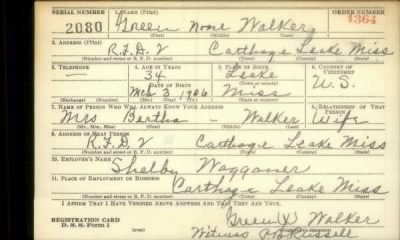 SERIAL NUMBER 1. NAME (Print) ORDER NUMBER
2080 Green none Walker 1364
(First) (Middle) (Last)
2. ADDRESS (Print)
R.F.D. 2 Carthage Leake Miss
(Number and street or R. F. D. number) (Town) (County) (State)
3. TELEPHONE 4. AGE IN YEARS 5. PLACE OF BIRTH 6. COUNTRY OF CITIZENSHIP
— 34 Leake
DATE OF BIRTH (Town or county) U.S.
3 1906 Miss
(Exchange) (Number) (Mo.) (Day) (Yr.) (State or country)
7. NAME OF PERSON WHO WILL ALWAYS KNOW YOUR ADDRESS 8. RELATIONSHIP OF THAT PERSON
Mrs Bertha – Walker Wife
(Mr., Mrs., Miss) (First) (Middle) (Last)
9. ADDRESS OF THAT PERSON
R.F.D. 2 Carthage Leake Miss
(Number and street or R. F. D. number) (Town) (County) (State)
10. EMPLOYER'S NAME
Shelby Waggoner
11. PLACE OF EMPLOYMENT OR BUSINESS
Carthage Leake Miss
(Number and street or R. F. D. number) (Town) (County) (State)
I AFFIRM THAT I HAVE VERIFIED ABOVE ANSWERS AND THAT THEY ARE TRUE.
REGISTRATION CARD Green (X) Walker
D. S. S. Form 1
Witness Russell